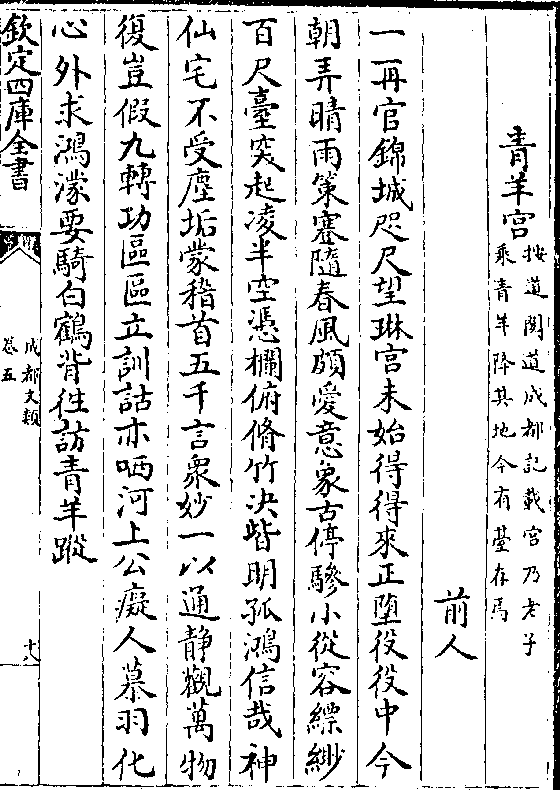 青羊宫按道閣道成都記載宫乃老子
乘青羊降其地今有臺存焉
前人
一再官錦城咫尺望琳宫未始得得來正墮役役中今
朝弄晴雨策蹇隨春風頗愛意象古停驂小從容縹緲
百尺臺突起凌半空憑欄俯脩竹决眥明孤鴻信哉神
仙宅不受塵垢蒙稽首五千言衆妙一以通静觀萬物
復豈假九轉功區區立訓詁亦哂河上公癡人慕羽化
心外求鴻濛要騎白鶴背往訪青羊蹤
欽定四庫全書
成都文類
卷五
十八